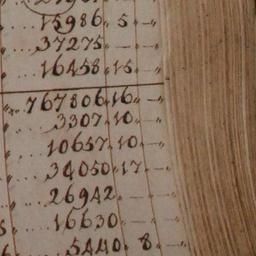 15986 " 5 " – "
37275 " – " – "
16458 " 15 " – "
767806 " 16 " – "
3307 " 10 " – "
10657 " 10 " – "
34050 " 17 " – "
26942 " – " – "
16630 " – " – "
5440 " 8 " – "